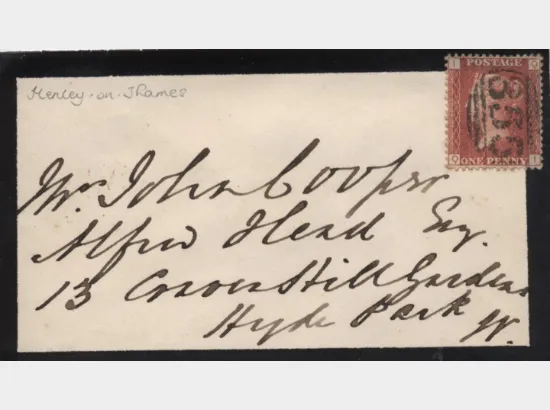 Henley-on-Thames
I POSTAGE Q
355
Q ONE PENNY I
Mrs John Cooper
Alfred Head Esq.
13 Craven Hill Gardens
Hyde Park
W.